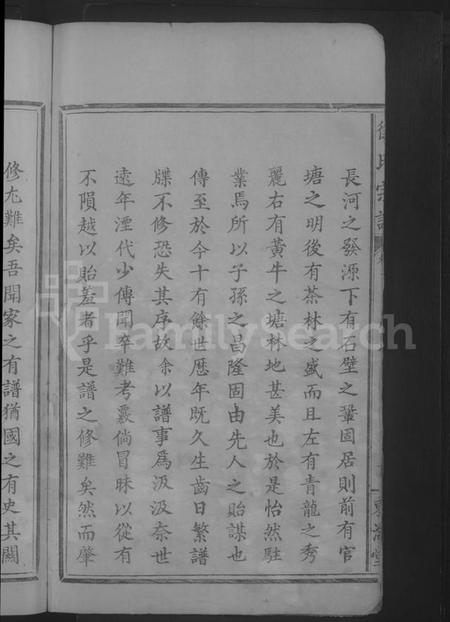 徐氏宗譜
長河之發源下有石壁之鞏固居則前有官
塘之明後有茶林之盛而且左有青龍之秀
麗右有黃牛之塘林地甚美也於是怡然駐
業焉所以子孫之昌隆固由先人之貽謀也
傳至於今十有餘世歷年既久生齒日繁譜
牒不修恐失其序故余以譜事為汲汲奈世
遠年湮代少傳聞卒難考覈倘冒昧以從有
不隕越以貽羞者乎是譜之修難矣然而肇
修尢難矣吾聞家之有譜猶國之有史其關
FamilySearch